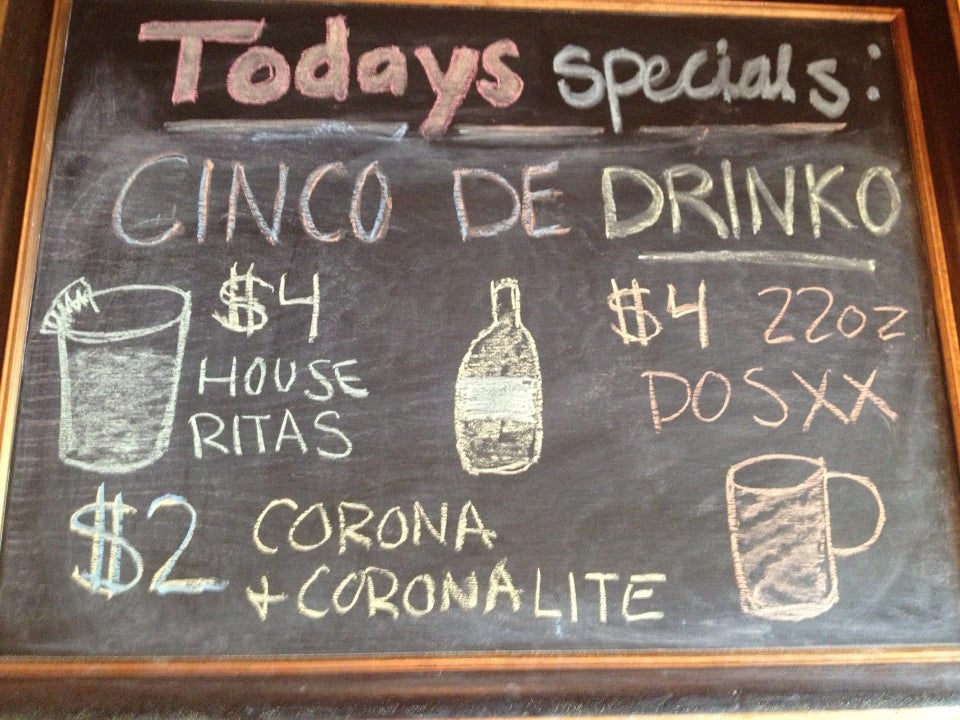 Todays specials:
CINCO DE DRINKO
$4
HOUSE
RITAS
$4 22oz
DOS XX
$2 CORONA
+ CORONA LITE